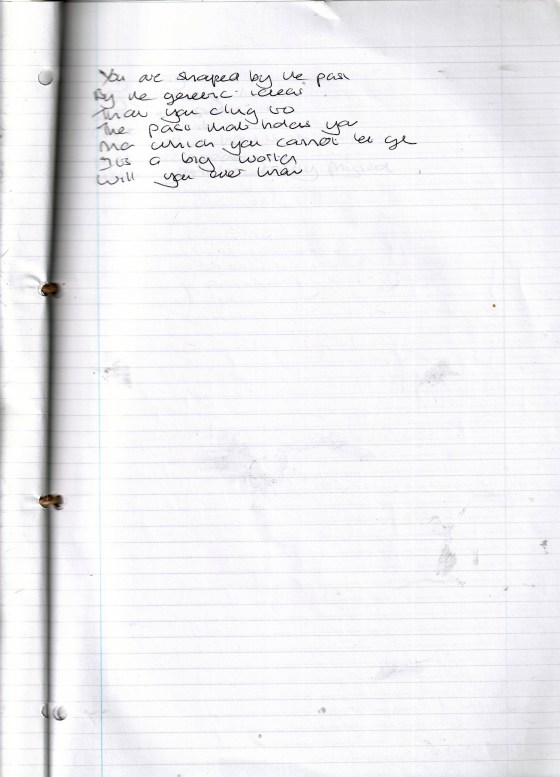 You are shaped by the past
By the generic ideas
That you cling to
The past that holds you
And which you cannot let go
Its a big world
Will you ever know